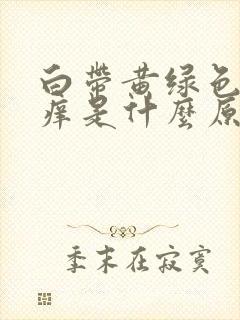 白带黄绿色
痒是什麼原
季末在寂寞